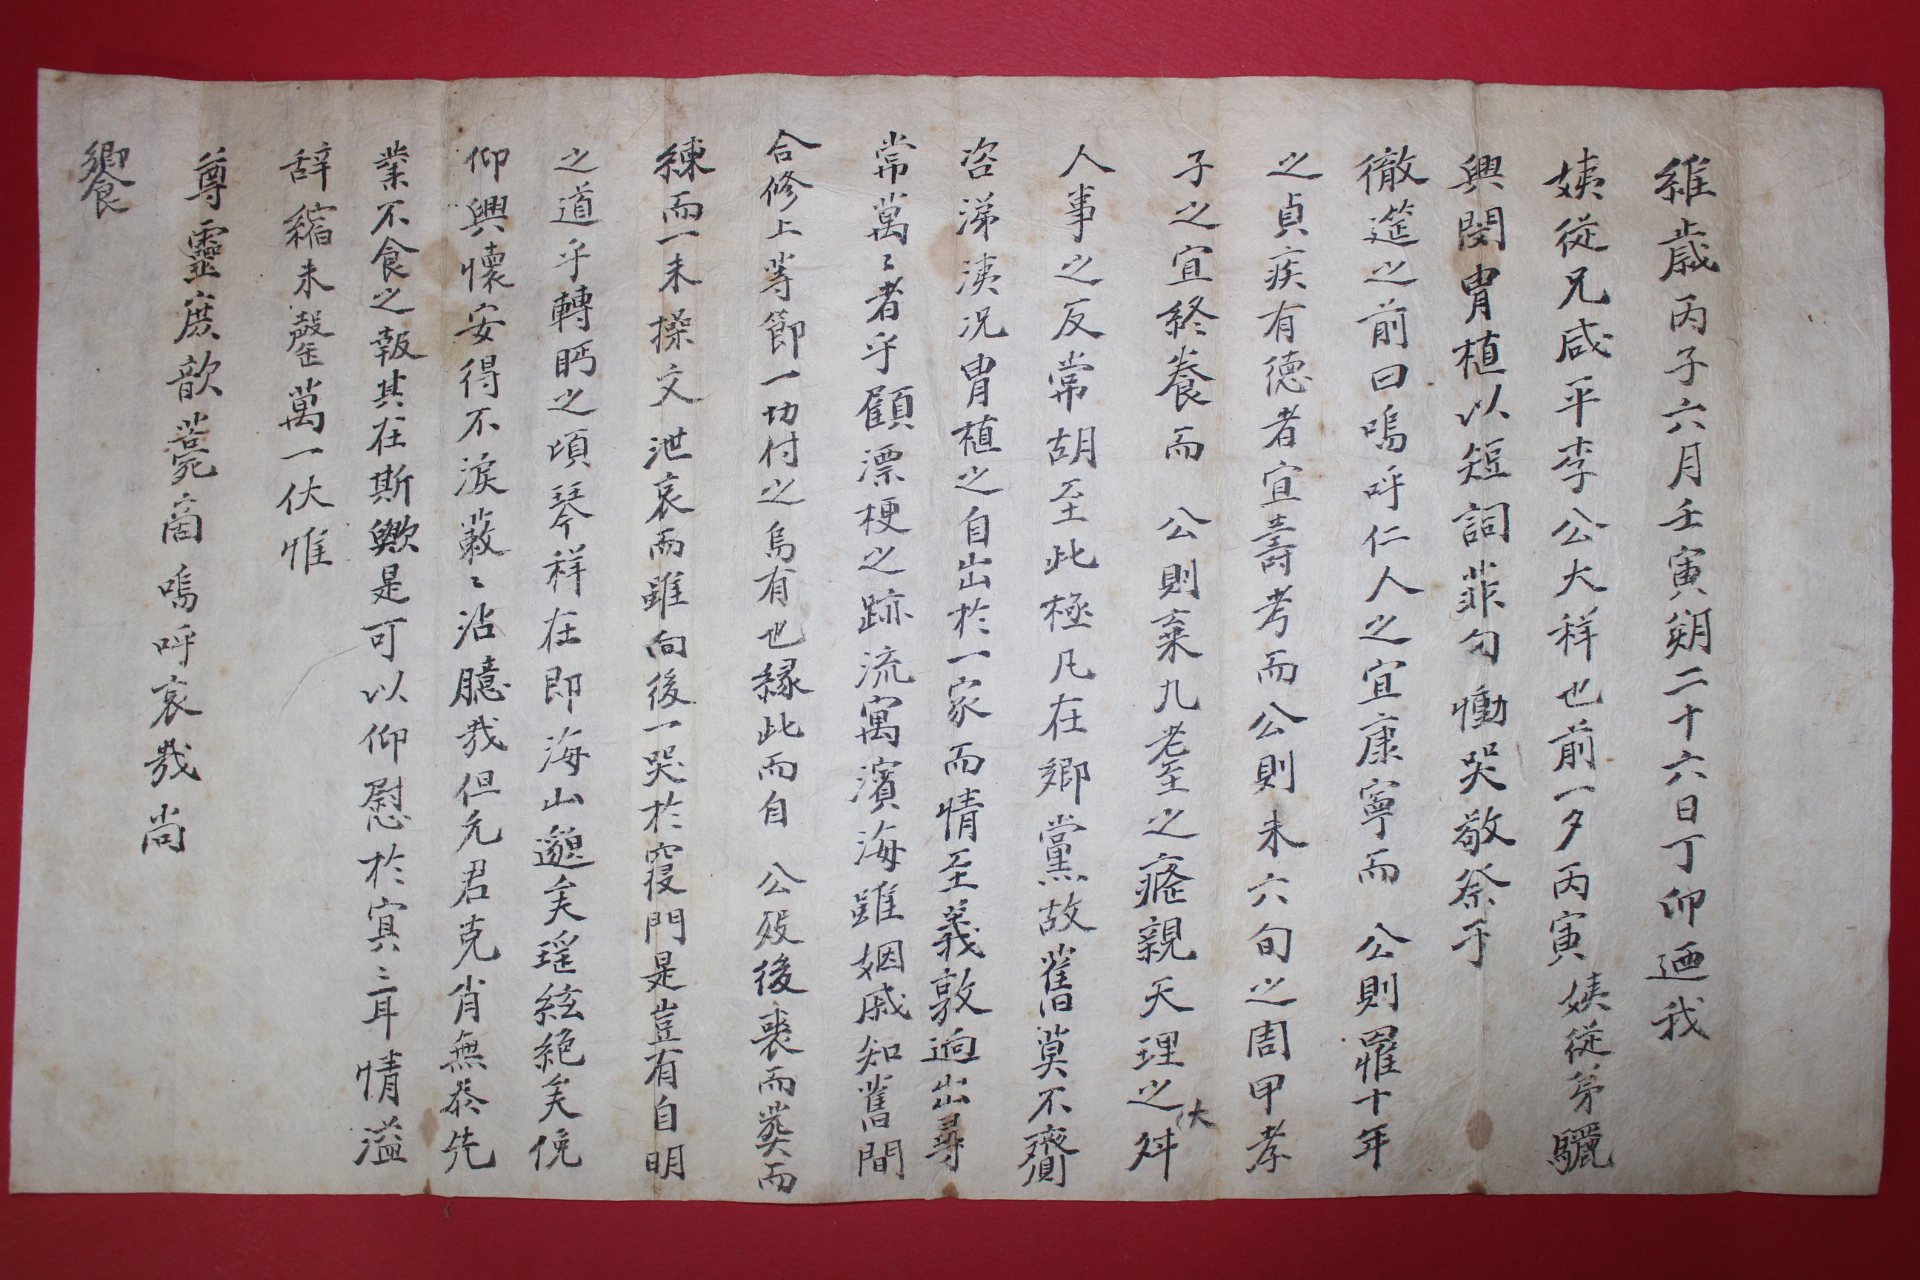 維歲丙子六月壬寅朔二十六日丁卯廼我
姨從兄咸平李公大祥也前一夕丙寅姨從弟驪
興閔胄植以短詞菲句慟哭敬祭于
徹筵之前曰嗚呼仁人之宜康寧而公則罹十年
之貞疾有德者宜壽考而公則未六旬之周甲孝
子之宜終養而公則棄九耋之癃親天理之大舛
人事之反常胡至此極凡在鄉黨故舊莫不齎
咨涕洟况胄植之自出於一家而情至義敦逈出尋
常萬〻者乎顧漂梗之跡流寓濱海雖姻戚知舊間
合修上等節一切付之烏有也緣此而自公歿後喪而葬而
練而一未操文泄哀而雖向後一哭於寢門是豈有自明
之道乎轉眄之頃琴祥在即海山邈矣瑤絃絶矣俛
仰興懷安得不淚簌〻沾臆哉但允君克肖無忝先
業不食之報其在斯歟是可以仰慰於冥〻耳情溢
辞縮未罄萬一伏惟
尊靈庶歆菀啚嗚呼哀哉尚
饗